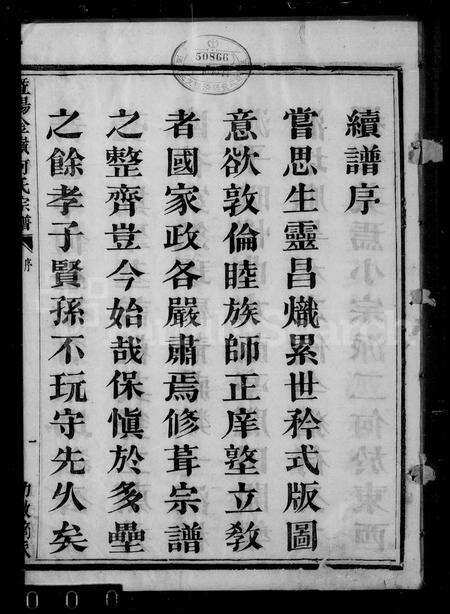 續譜序
嘗思生靈昌熾累世矜式版圖
意欲敦倫睦族師正庠塾立敎
者國家政各嚴肅焉修葺宗譜
之整齊豈今始哉保愼於多壘
之餘孝子賢孫不玩守先乆矣
序
一
50866
000